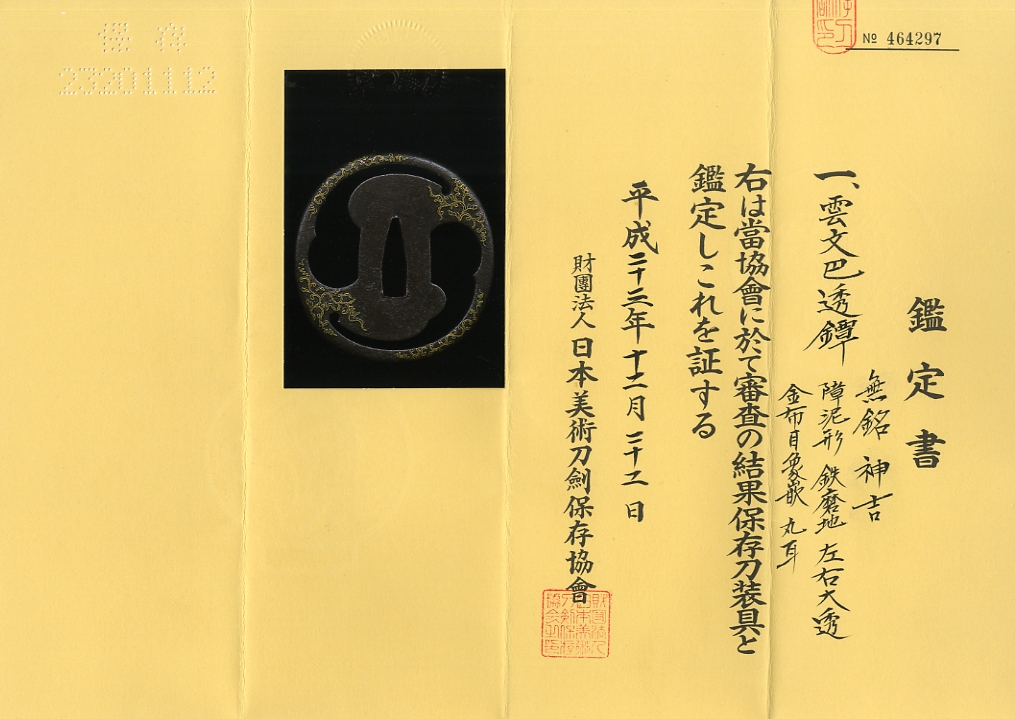 № 464297
鑑定書
一、雲文巴透鐔
無銘 神吉
障泥形 鉄磨地 左右大透
金布目象嵌 丸耳
右は當協會に於て審査の結果保存刀装具と
鑑定しこれを証する
平成二十三年十二月二十二日
財團法人日本美術刀劍保存協會
保存
23201112